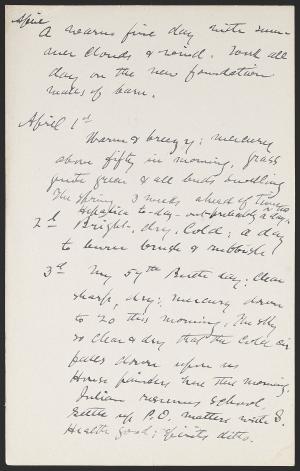 April
A warm fine day with sum-
mer clouds & wind. Work all
day on the new foundation
walls of barn.
April 1st
Warm & breezy; mercury
above fifty in morning, grass
quite green & all buds swelling
The spring 3 weeks ahead of time
Hepatica to-day - out probably a day or two
2d Bright, dry, cold; a day
to burn brush & rubbish
3d My 57th Birth day; clear
sharp, dry; mercury down
to 20 this morning, The sky
so clear & dry that the cold air
falls down upon us
House painters here this morning.
Julian resumes school,
Settle up P.O. matters with S.
Health good; spirits ditto.